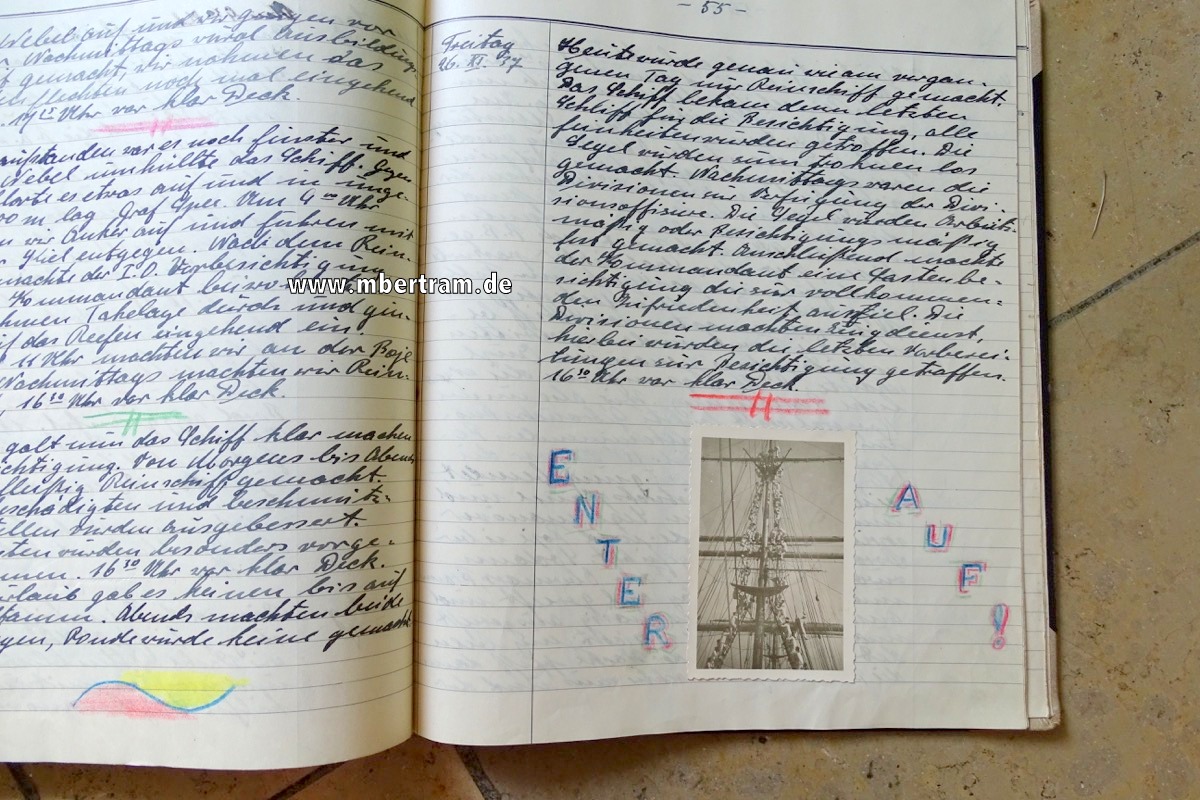 Nebel auf und wir gingen vor
Nachmittags wurde Ausbildung
gemacht, wir nahmen das
flechten noch mal eingehend
Uhr war klar Deck.
aufstanden war es noch finster und
Nebel umhüllte das Schiff. Gegen
klarte es etwas auf und in unge-
00 m lag Graf Spee. Um 4 Uhr
wir Anker auf und fuhren mit
Kiel entgegen. Nach dem Rein-
machte der I.O. Vorbesichtigung
Kommandant
Takelage durch und gin-
das Reefen eingehend ein
Uhr machten wir an der Boje
Nachmittags machten wir Rein-
16³⁰ Uhr war klar Deck.
galt nun das Schiff klar machen
ichtigung. Von Morgens bis Abends
Reinschiff gemacht.
eschädigten und beschmutz-
ellen wurden ausgebessert.
sten wurden besonders vorge-
men. 16³⁰ Uhr war klar Deck.
rlaub gab es keinen bis auf
Abends machten beide
gen, Ronde wurde keine gemacht
- 55 -
Freitag
26. XI. 37
Heute wurde genau wie am vergan-
genen Tag nur Reinschiff gemacht.
Das Schiff bekam denn letzten
Schliff für die Besichtigung, alle
feinheiten wurden getroffen. Die
Segel wurden zum trocknen los
gemacht. Nachmittags waren die
Divisionen zur Verfügung der Divi-
sionsoffiziere. Die Segel wurden Arbeits-
mäßig oder Besichtigungsmäßig
fest gemacht. Anschließend machte
der Kommandant eine Lastenbe-
sichtigung die zur vollkommen-
den Zufriedenheit ausfiel. Die
Divisionen machten Zeugdienst,
hierbei wurden die letzten Vorberei-
tungen zur Besichtigung getroffen.
16³⁰ Uhr war klar Deck.
ENTER
AUF!
www.mbertram.de